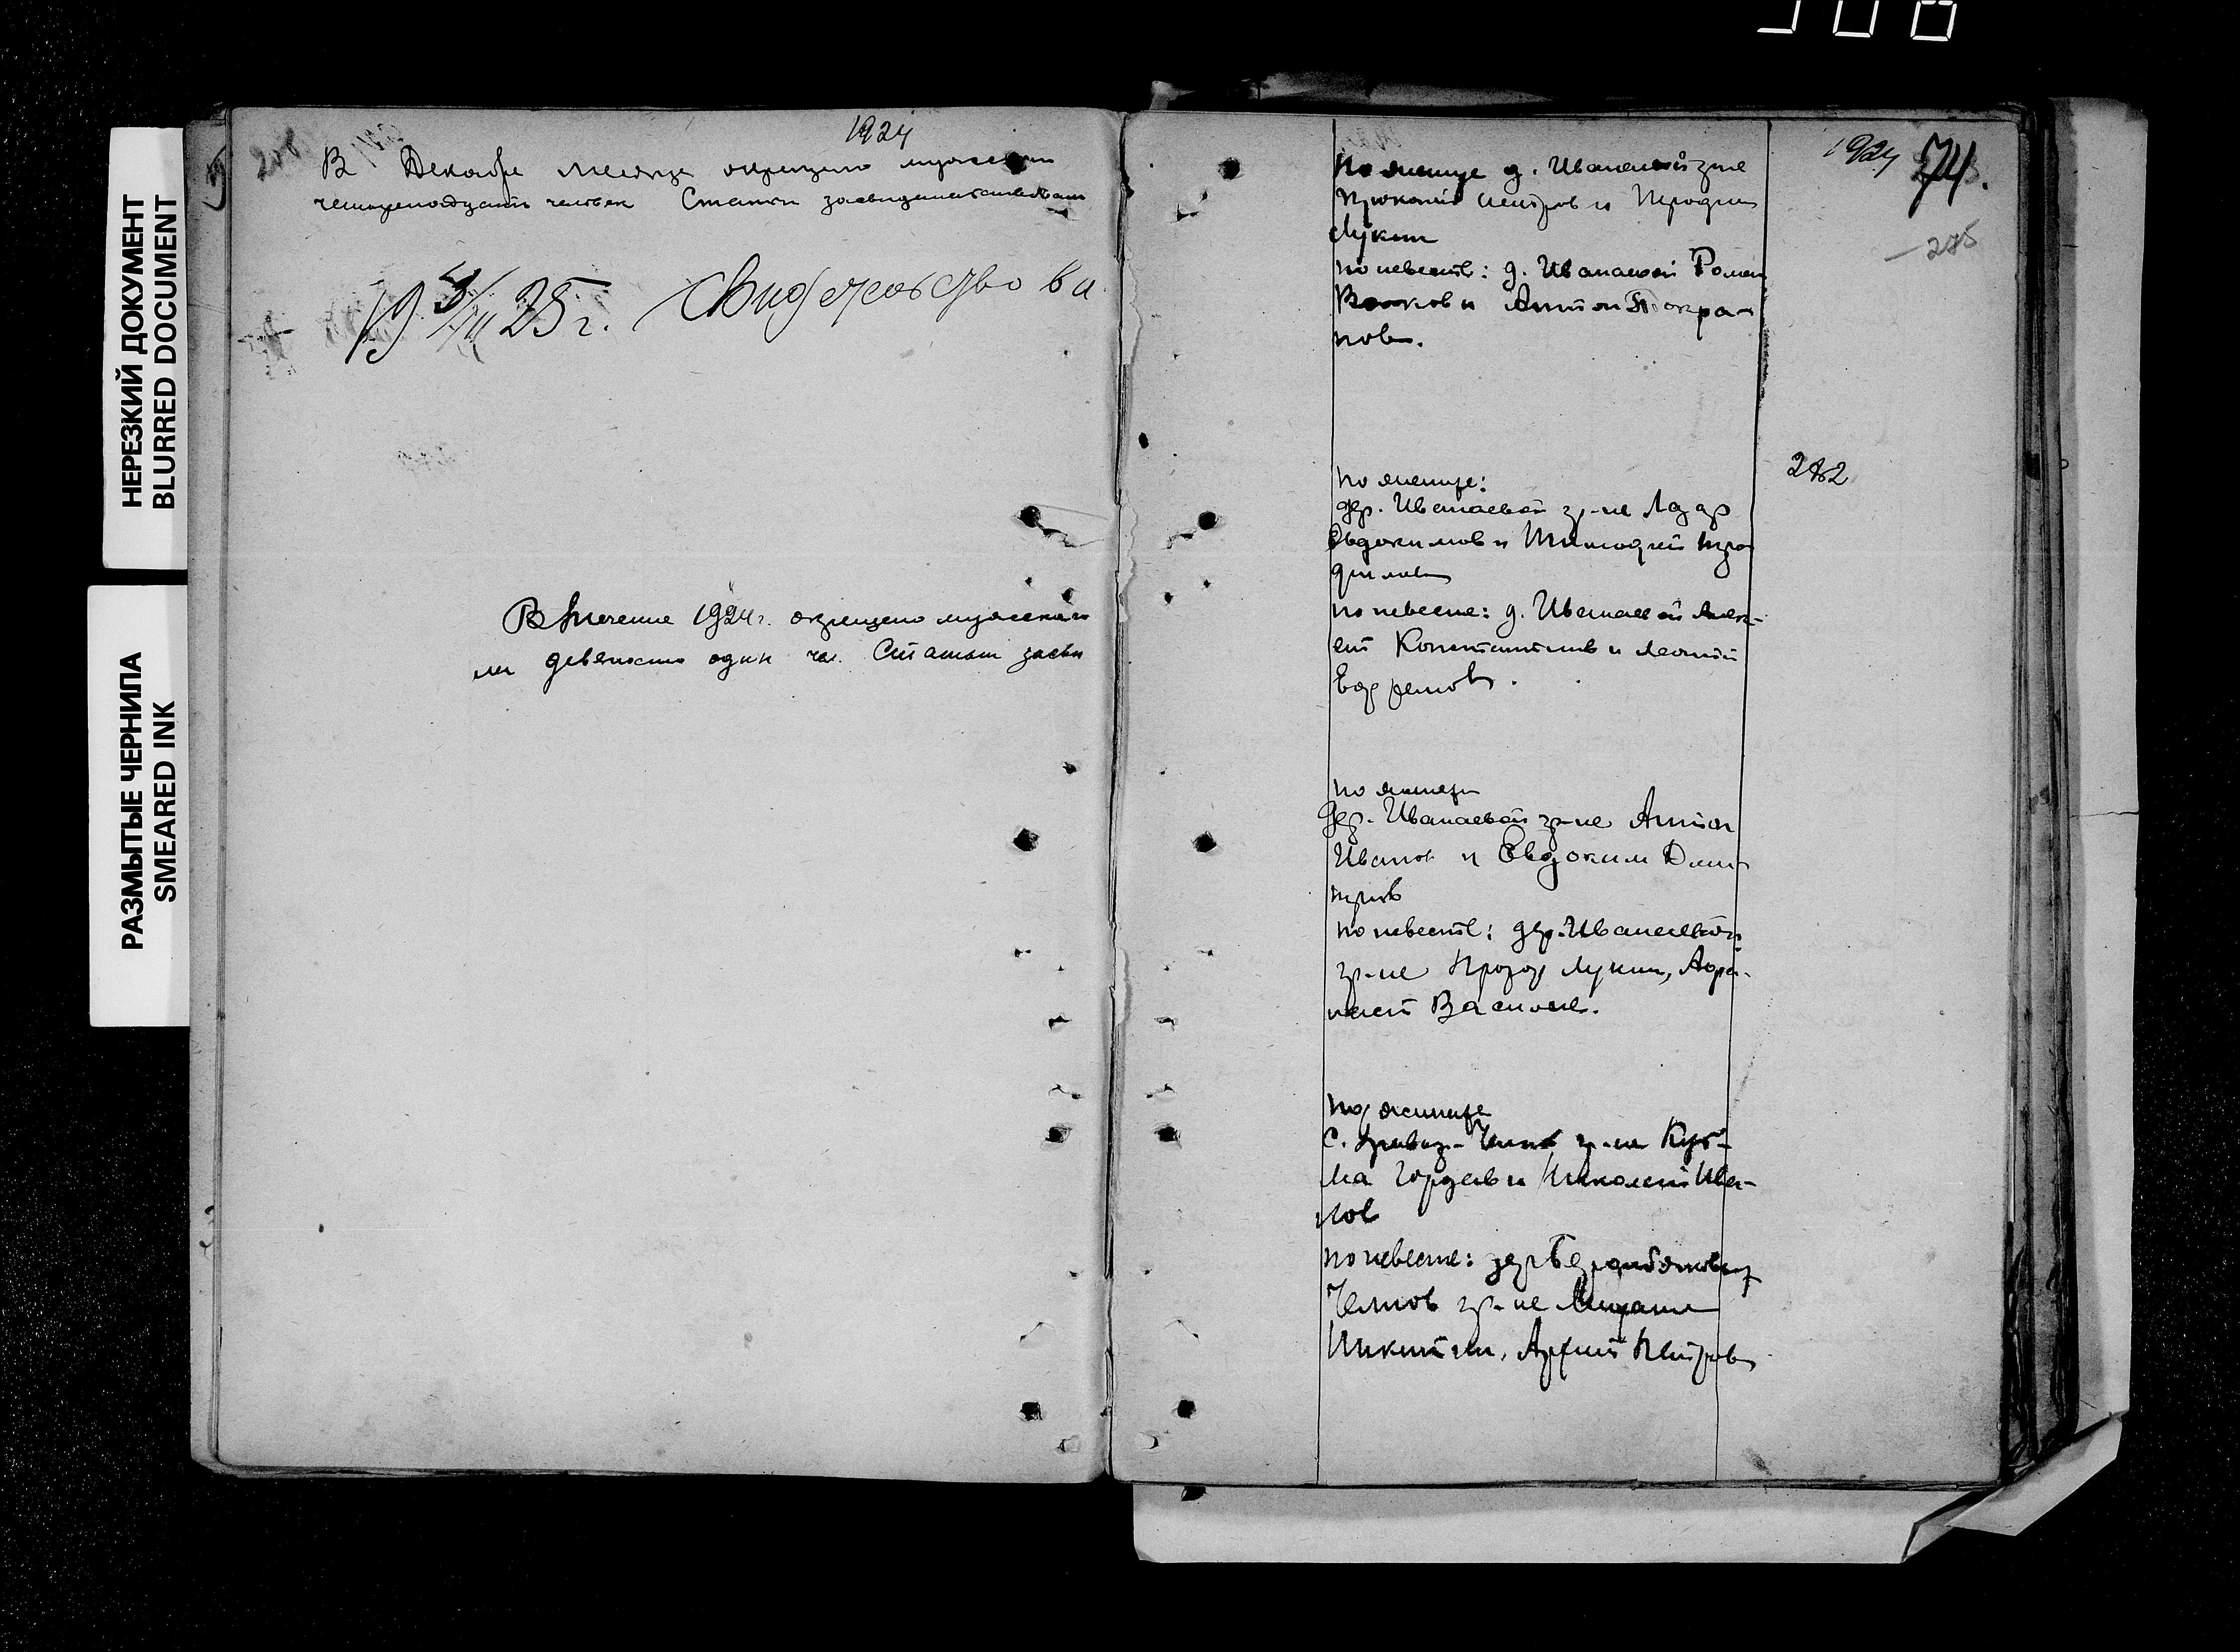 308
НЕРЕЗКИЙ ДОКУМЕНТ
BLURRED DOCUMENT
РАЗМЫТЫЕ ЧЕРНИЛА
SMEARED INK
208
1924
В Декабре месяце окрещено мужеска
четырнадцать человек Статьи
19 25 г. Свидетельствова
В течение 1924 г. окрещено мужеска
ли девяносто один чел. Статьи засви
1924 74.
285
по женихе д. Иванаевой гр-не
Прокопий Петров и
Лукин
по невесте: д. Иванаевой Роман
Волков и Антон Покра-
нов.
282
по женихе:
дер. Иванаевой гр-не Лазар
Евдокимов и Тимофей Тро
фимов
по невесте: д. Иванаевой Алек-
ей Константинов и Леонтий
Ефремов.
по женихе
дер. Иванаевой гр-не Антон
Иванов и Евдоким Дми
триев
по невесте: дер. Иванаевой
гр-не Прохор Лукин, Афа-
насий Васильев.
по женихе
с. гр-не Кузь-
ма Гордеев и Николай Ива-
нов
по невесте: дер.
Челнов гр-не Михаил
Никитин, Архип Петров